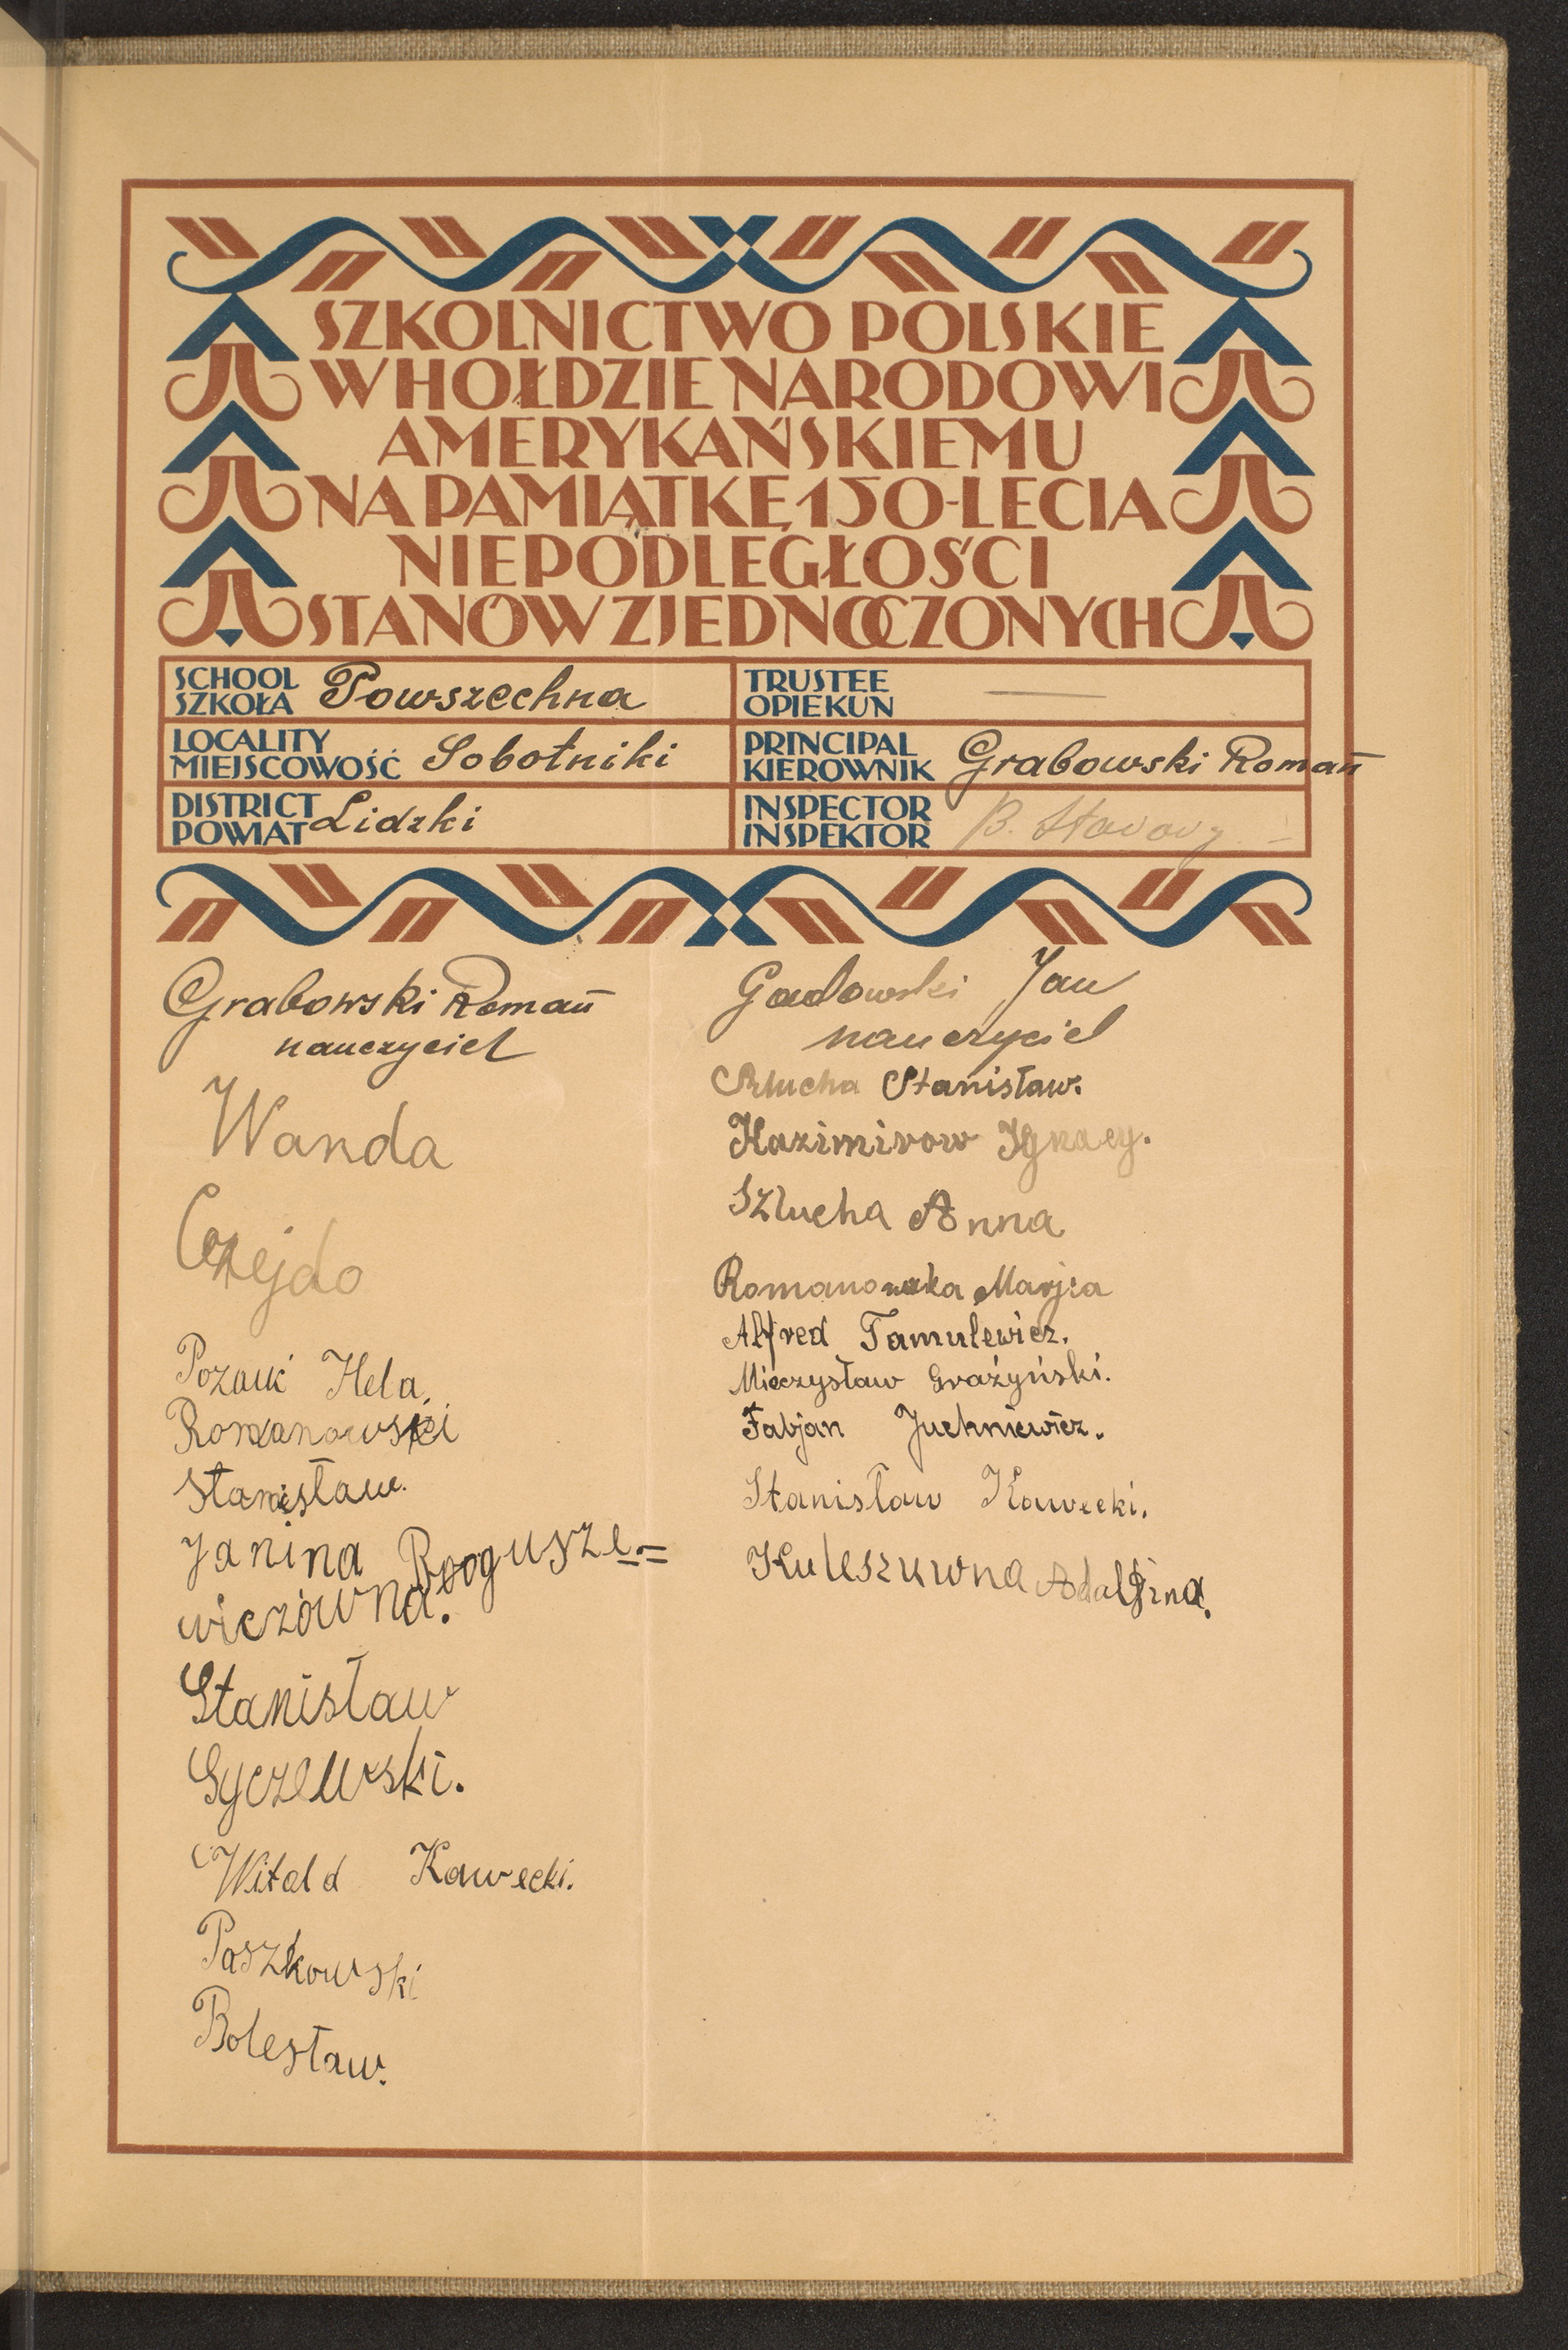 SZKOLNICTWO POLSKIE
W HOŁDZIE NARODOWI
AMERYKAŃSKIEMU
NA PAMIĄTKĘ 150-LECIA
NIEPODLEGŁOŚCI
STANÓW ZJEDNOCZONYCH
SCHOOL
SZKOŁA Powszechna
TRUSTEE
OPIEKUN —
LOCALITY
MIEJSCOWOŚĆ Sobotniki
PRINCIPAL
KIEROWNIK Grabowski Roman
DISTRICT
POWIAT Lidzki
INSPECTOR
INSPEKTOR B.
Grabowski Roman
nauczyciel
Wanda
Czejdo
Hela.
Romanowski
Stanisław.
Janina Bogusze=
wiczówna.
Stanisław
Gyczewski.
Witold Kawecki.
Paszkowski
Bolesław.
Gadowski Jan
nauczyciel
Szlucha Stanisław.
Kazimirow Ignacy.
Szlucha Anna
Romanowska Marja
Alfred Tamulewicz.
Mieczysław Grażyński.
Fabjan Juchniewicz.
Stanisław Kawecki.
Kuleszuwna Adalfina.